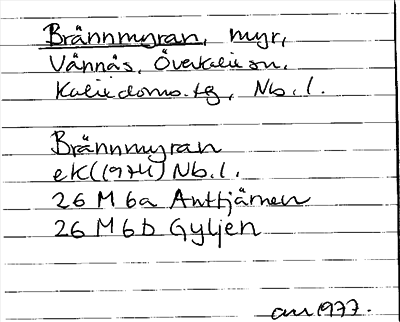 Brännmyran, myr,
Vännäs, Överkalix sn,
Kalix doms. tg, Nb. l.
Brännmyran
eK(1974) Nb. l.
26 M 6a Anttjärnen
26 M 6b Gyljen
1977.